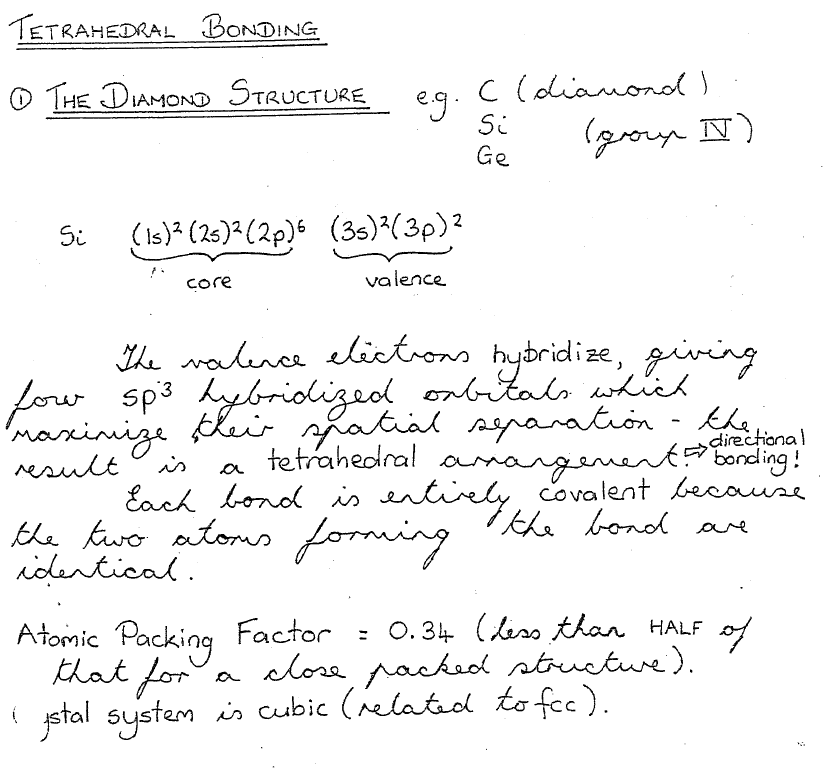 TETRAHEDRAL BONDING
① THE DIAMOND STRUCTURE e.g. C (diamond)
Si (group IV)
Ge
Si (1s)² (2s)² (2p)⁶ (3s)² (3p)²
core valence
The valence electrons hybridize, giving
four sp³ hybridized orbitals which
maximize their spatial separation - the
result is a tetrahedral arrangement. ⇒ directional
bonding!
Each bond is entirely covalent because
the two atoms forming the bond are
identical.
Atomic Packing Factor = 0.34 (less than HALF of
that for a close packed structure).
system is cubic (related to fcc).